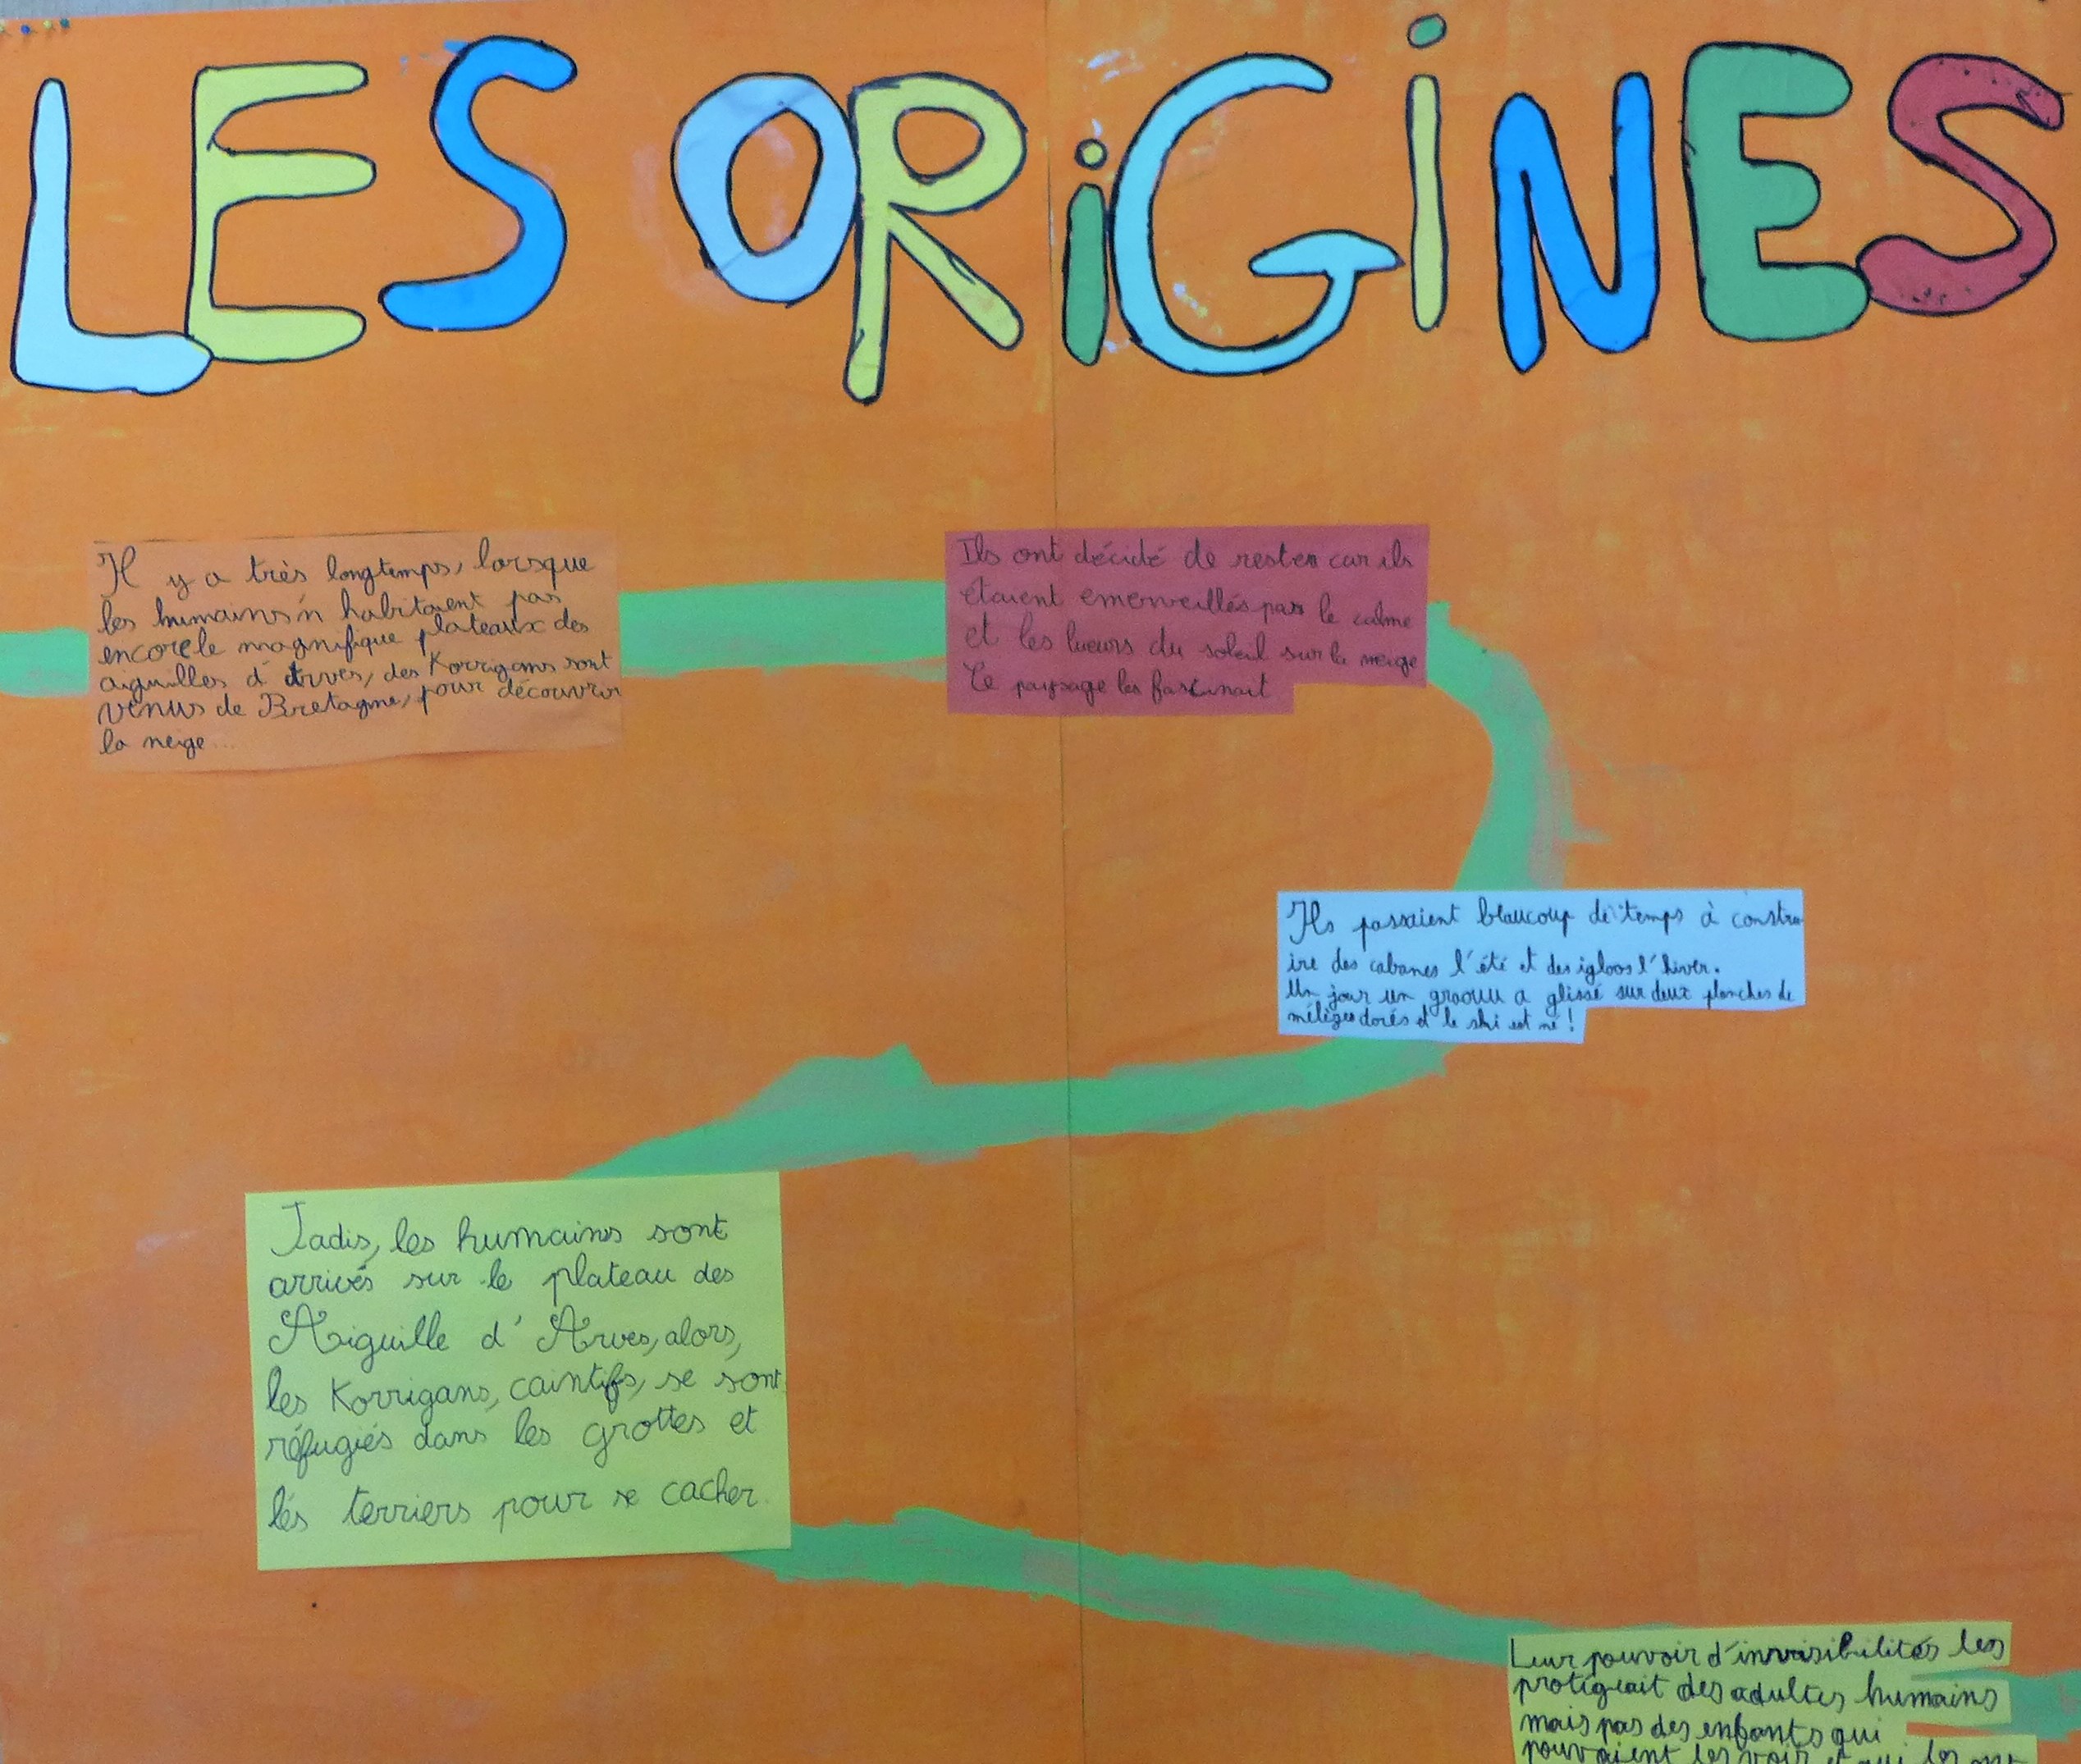 LES ORiGiNES
Il y a très longtemps, lorsque
les humains n'habitaient pas
encore le magnifique plateaux des
aiguilles d'Arves, des Korrigans sont
venus de Bretagne, pour découvrir
la neige...
Ils ont décidé de rester car ils
étaient emerveillés par le calme
et les lueurs du soleil sur la neige
Ce paysage les fascinait
Ils passaient beaucoup de temps à constru-
ire des cabanes l'été et des igloos l'hiver.
Un jour un groouu a glissé sur deux planches de
mélèzes dorés et le ski est né !
Jadis, les humains sont
arrivés sur le plateau des
Aiguille d'Arves, alors,
les Korrigans, caintifs, se sont
réfugiés dans les grottes et
lés terriers pour se cacher.
Leur pouvoir d'invisibilités les
protégeait des adultes humains
mais pas des enfants qui
pouvaient les voir et qui les ont